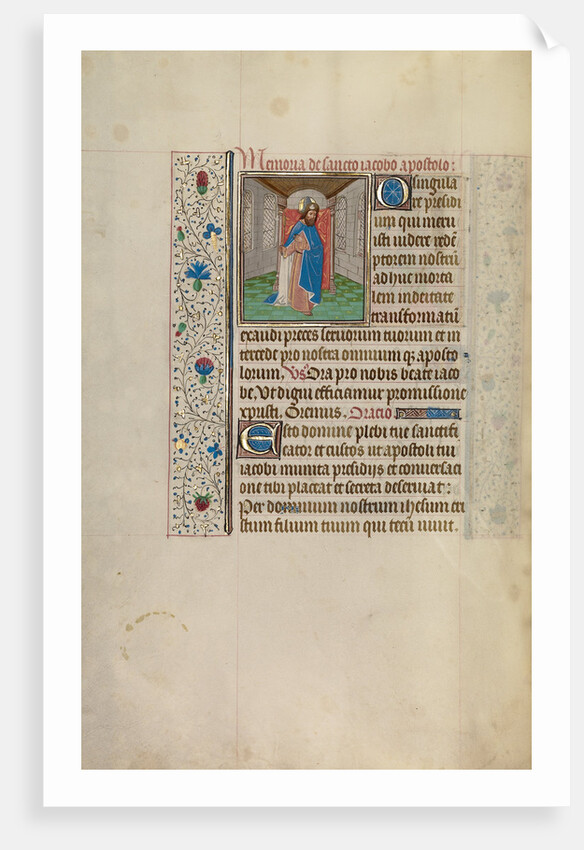 Memoria de sancto iacobo apostolo:
O singula
re presidi
um qui meru
isti videre redē
ptorem nostrū
adhuc morta
lem indeitate
transformatū
exaudi preces servorum tuorum et in
tercede pro nostra omnium qz aposto
lorum, Vs Ora pro nobis beate iaco
be, Ut digni efficiamur promissione
xpristi. Oremus. Oracio
Esto domine plebi tue sanctifi
cator et custos ut apostoli tui
iacobi munita presidijs et conversaci
one tibi placeat et secreta deserviat:
Per dominum nostrum ihesum cri
stum filium tuum qui tecū vivit.